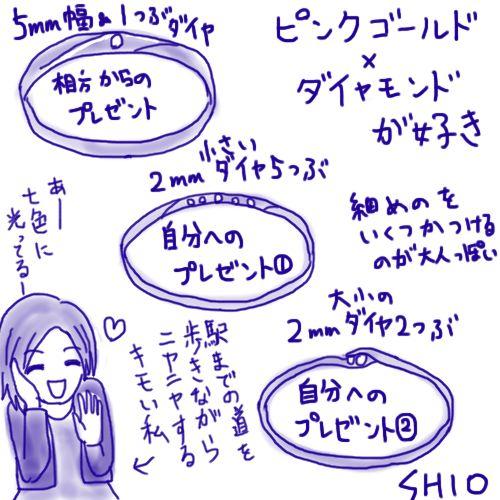 5mm幅&1つぶダイヤ
相方からの
プレゼント
ピンクゴールド
×
ダイヤモンド
が好き
小さい
2mmダイヤ5つぶ
自分への
プレゼント①
細めのを
いくつかつける
のが大人っぽい
あー
七色に
光ってるー
大小の
2mmダイヤ2つぶ
自分への
プレゼント②
駅までの道を
歩きながら
ニヤニヤする
キモい私
SHIO